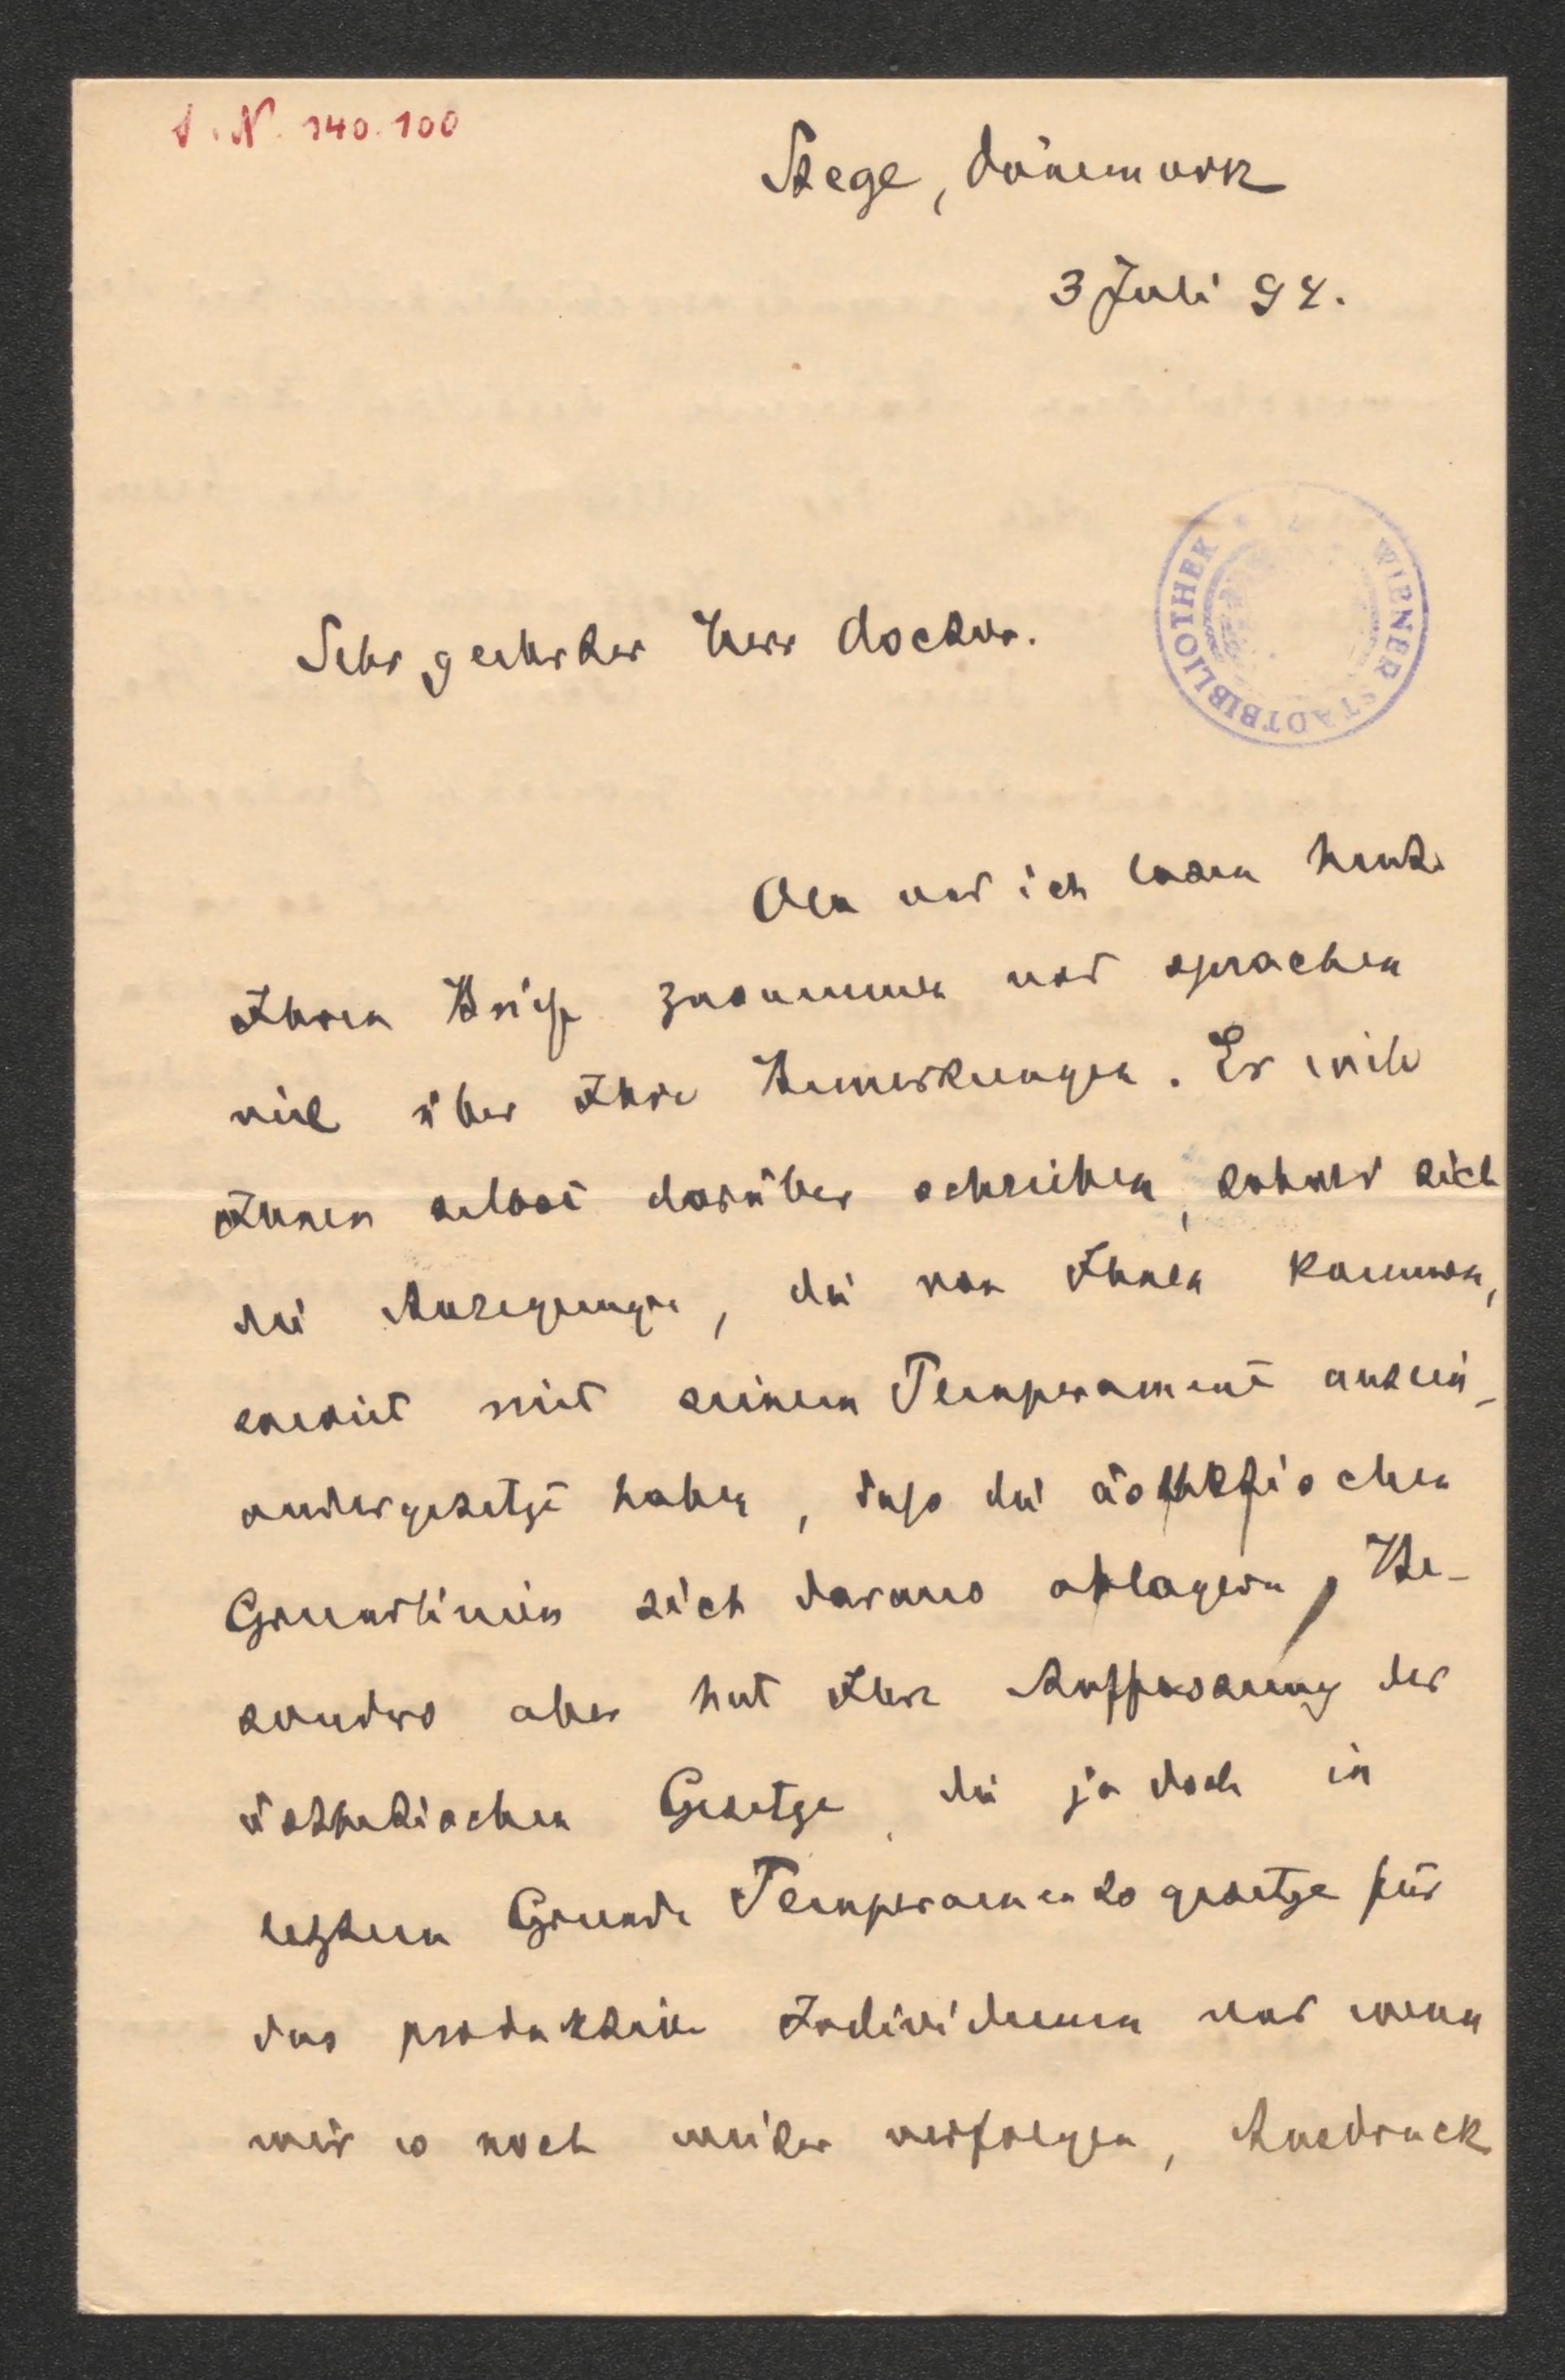 I. N. 140.100
Stege, Dänemark
3 Juli 94.
WIENER STADTBIBLIOTHEK
Sehr geehrter Herr Doctor.
Ola und ich lasen heute
Ihren Brief zusammen und sprachen
viel über Ihre Bemerkungen. Er will
Ihnen selbst darüber schreiben, sobald sich
die Anregungen, die von Ihnen kommen,
soweit mit seinem Temperament ausein-
andergesetzt haben, daß die ästhetischen
Grundlinien sich daraus ablagern. Be-
sonders aber hat Ihre Auffassung der
ästhetischen Gesetze, die ja doch in
letztem Grunde Temperamentsgesetze für
das produktive Individuum und wenn
wir es noch weiter verfolgen, Ausdruck